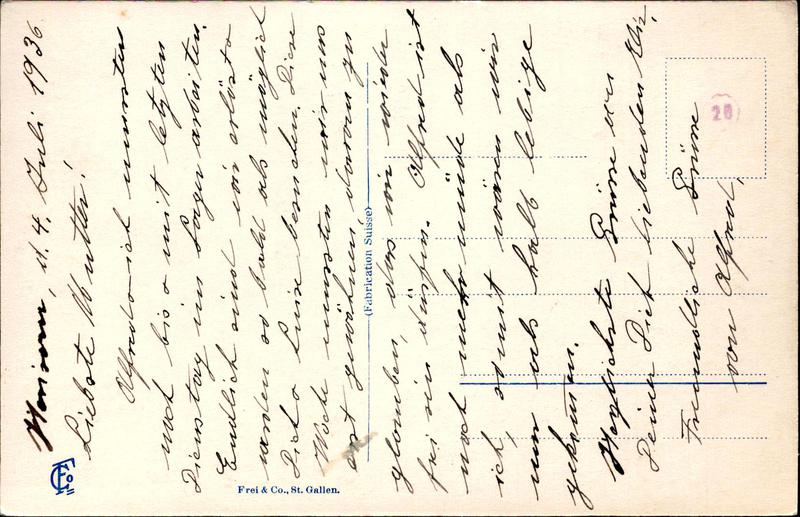 Herisau, d. 4. Juli 1936
Liebste Mutter!
Alfred & ich mussten
noch bis & mit letzten
Dienstag ins Lager arbeiten.
Endlich sind wir erlöst &
werden so bald als möglich
Dich & Luise besuchen. Diese
Woche mussten wir uns
erst gewöhnen, daran zu
glauben, dass wir wieder
frei sein dürfen. Alfred ist
noch mehr müde als
ich, somit wären wir
nur als halb lebige
gekommen.
Herzlichste Grüsse von
Deiner Dich liebenden
Freundliche Grüsse
von Alfred.
20
(Fabrication Suisse)
Frei & Co., St. Gallen.